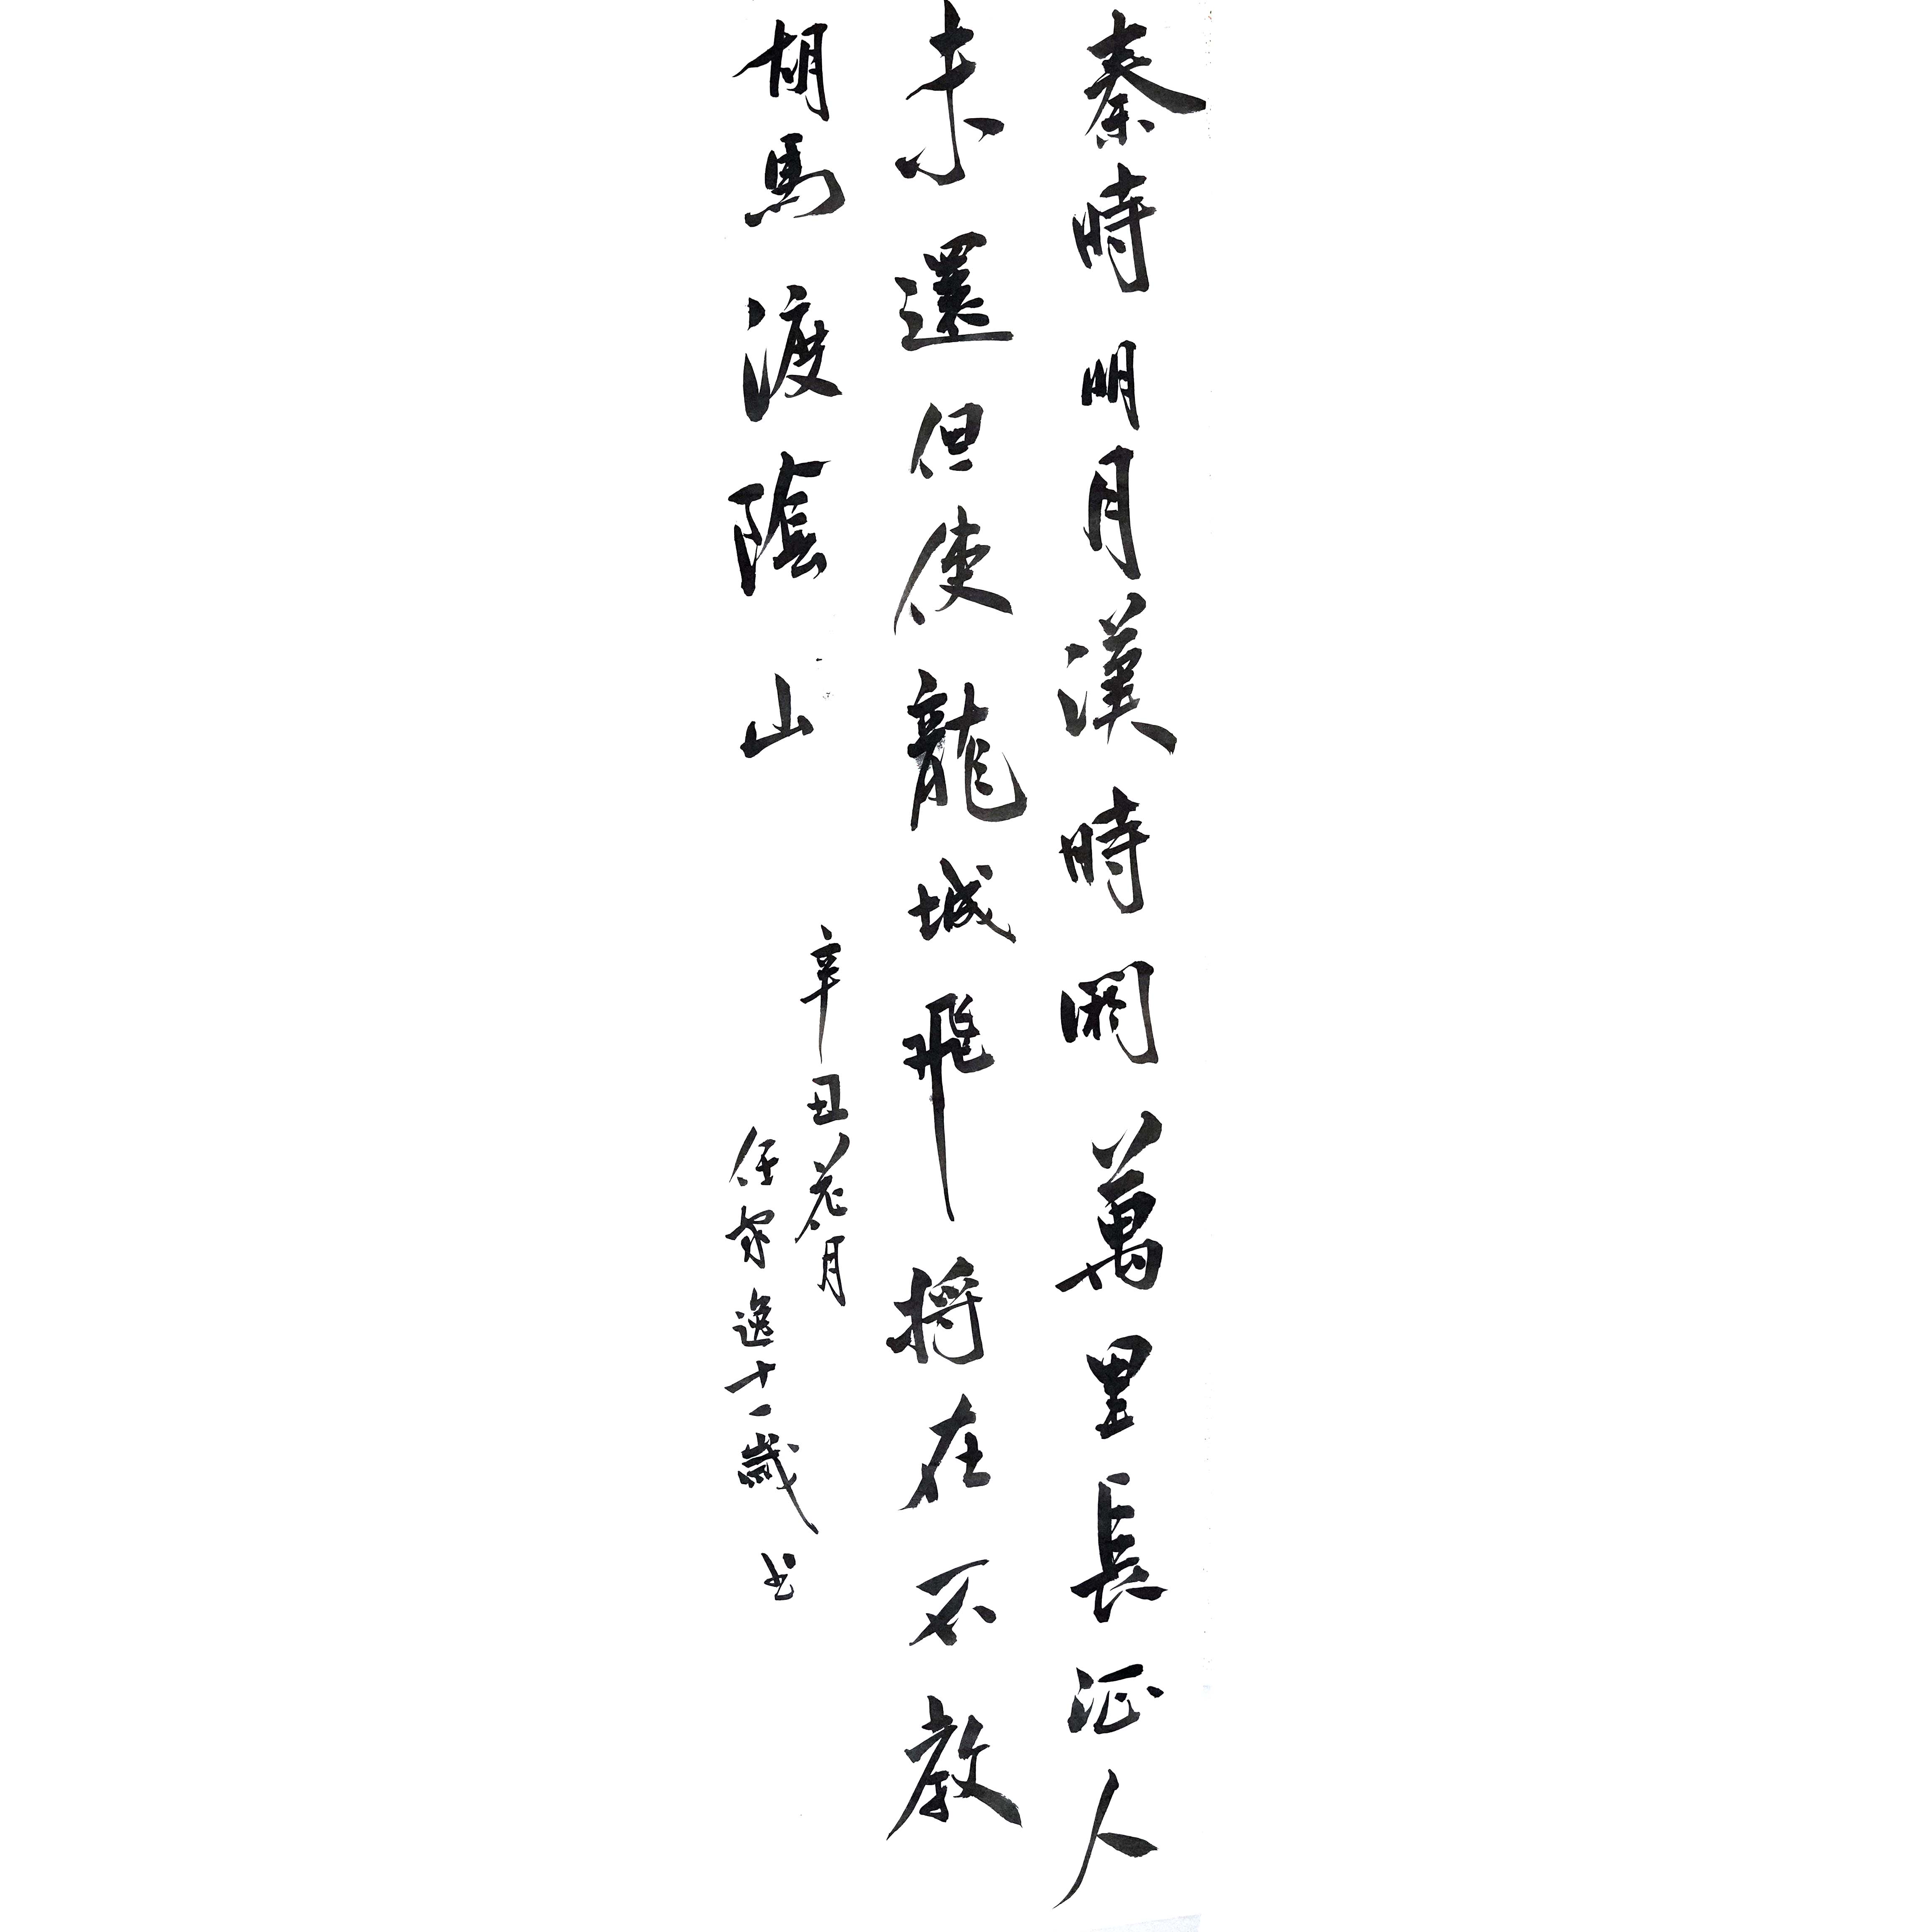 秦時明月漢時関萬里長征人
未還但使龍城飛將在不教
胡馬渡陰山
辛丑花月
任家逸十一歲书